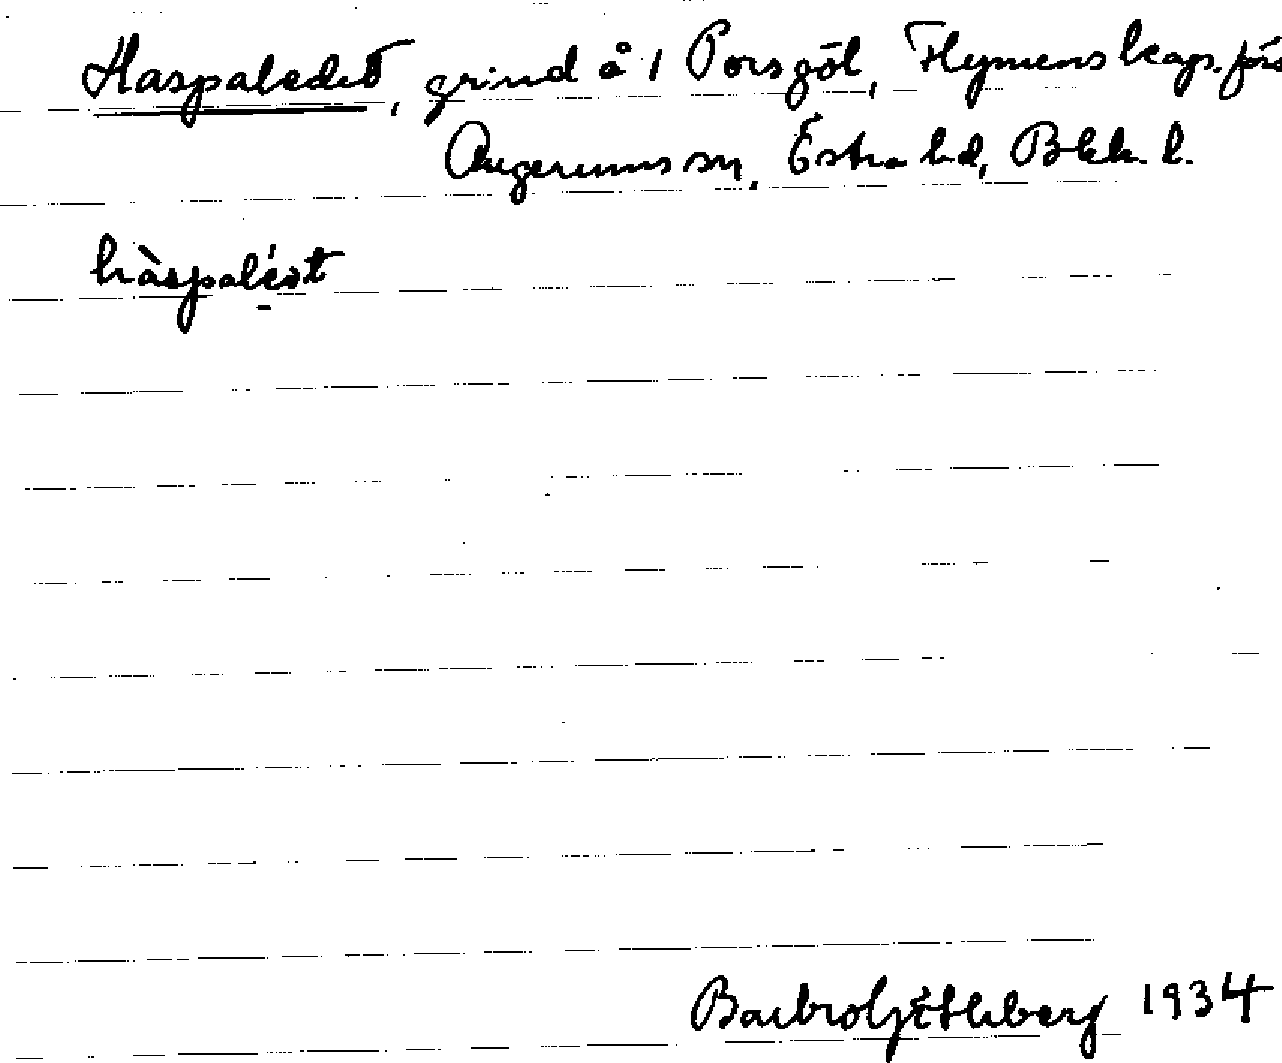 Haspaledet, grind å 1 Porsgöl, Flymens kap. förs
Augerums sn, Östra hd, Blek. l.
hàspaléət
Barbro 1934